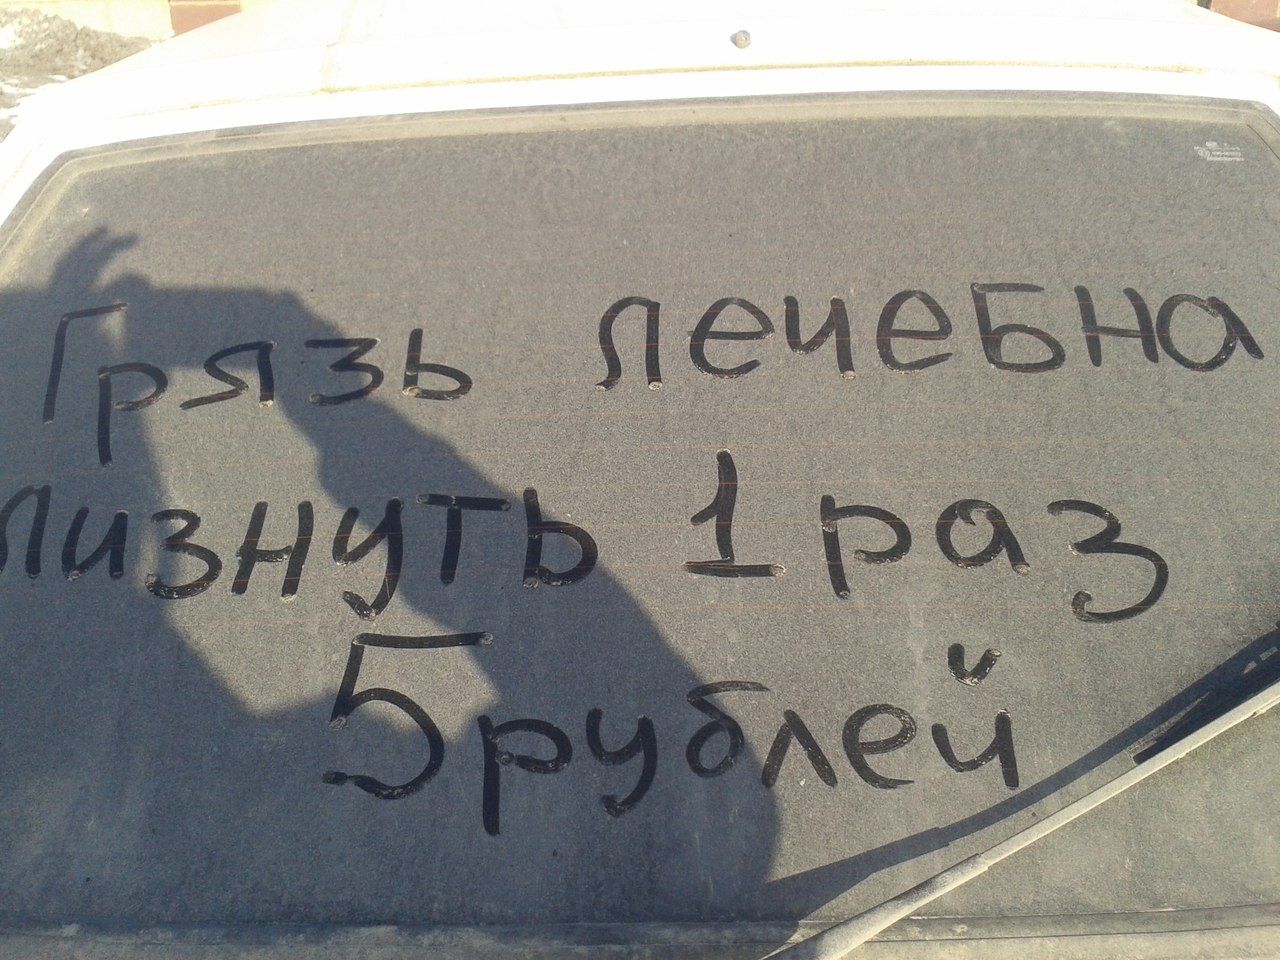 Грязь лечебна
лизнуть 1 раз
5 рублей